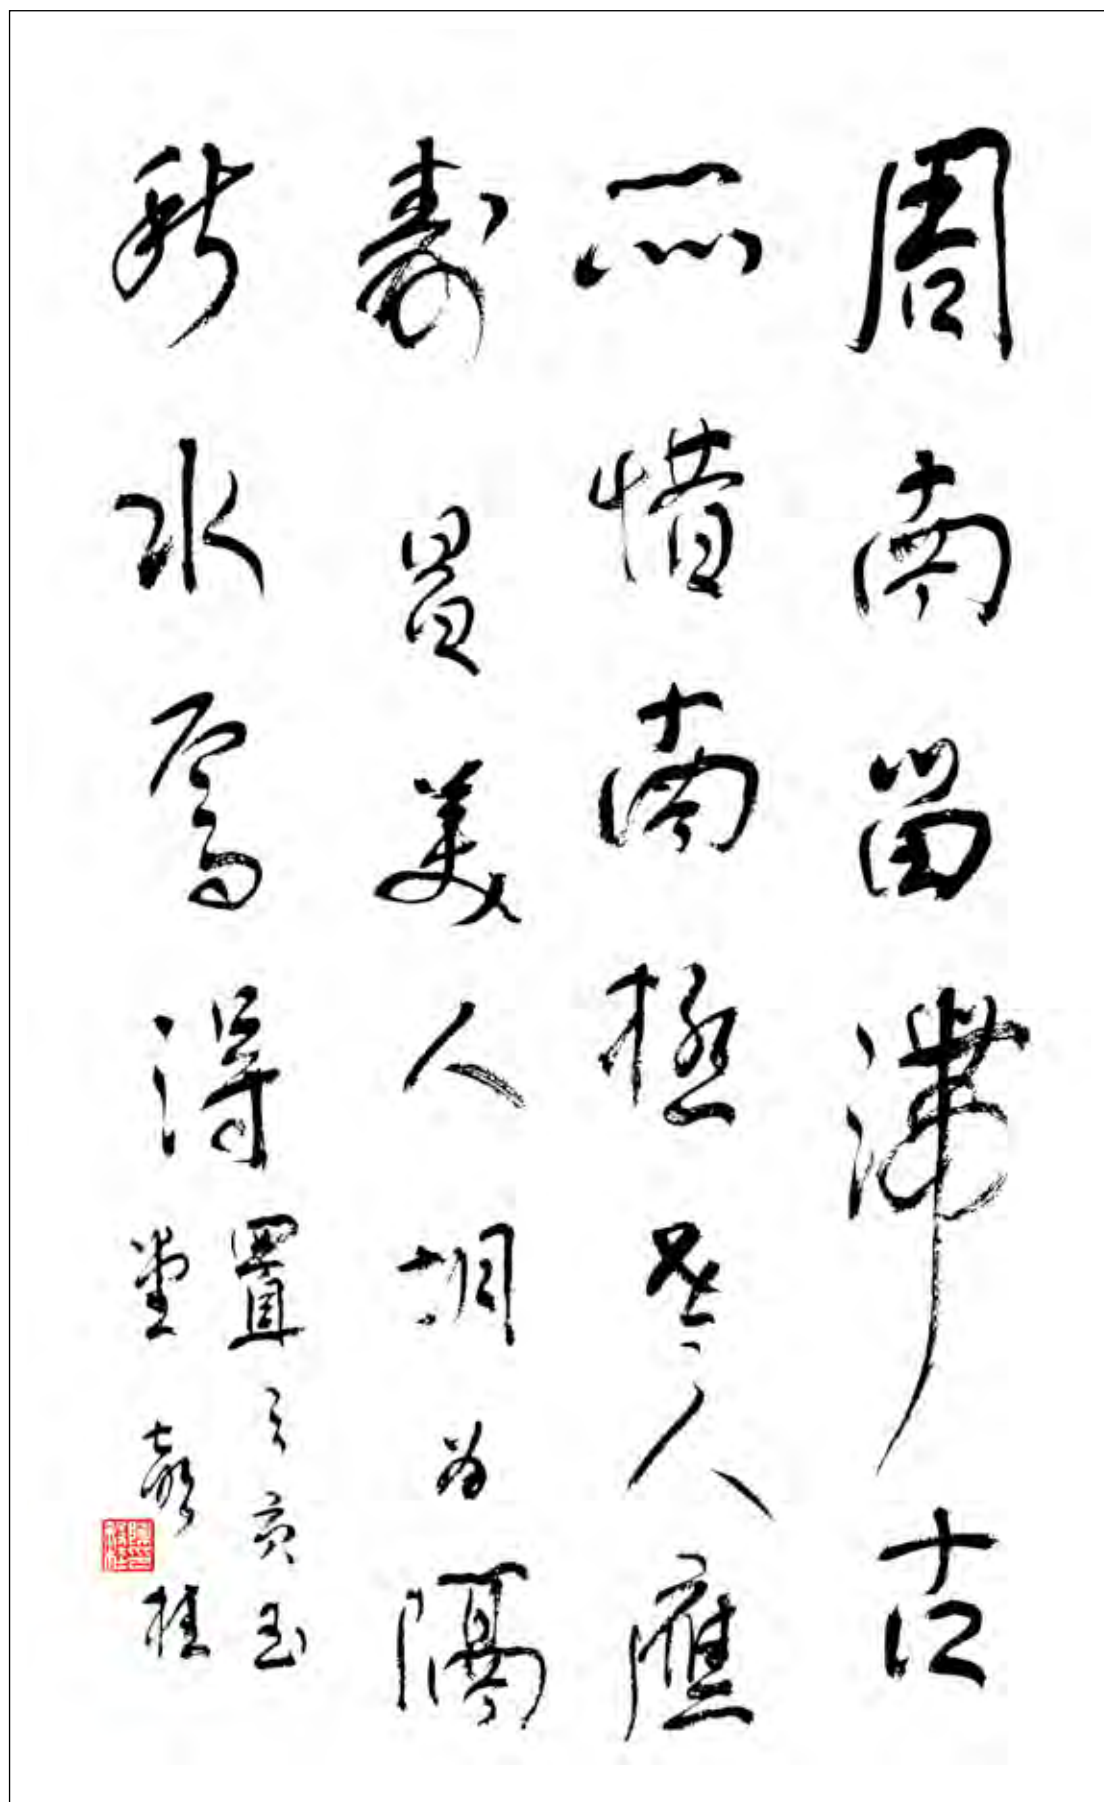 周南留滯古
所惜南極老人應
壽昌美人胡为隔
秋水焉得
置之貢玉
堂 桂